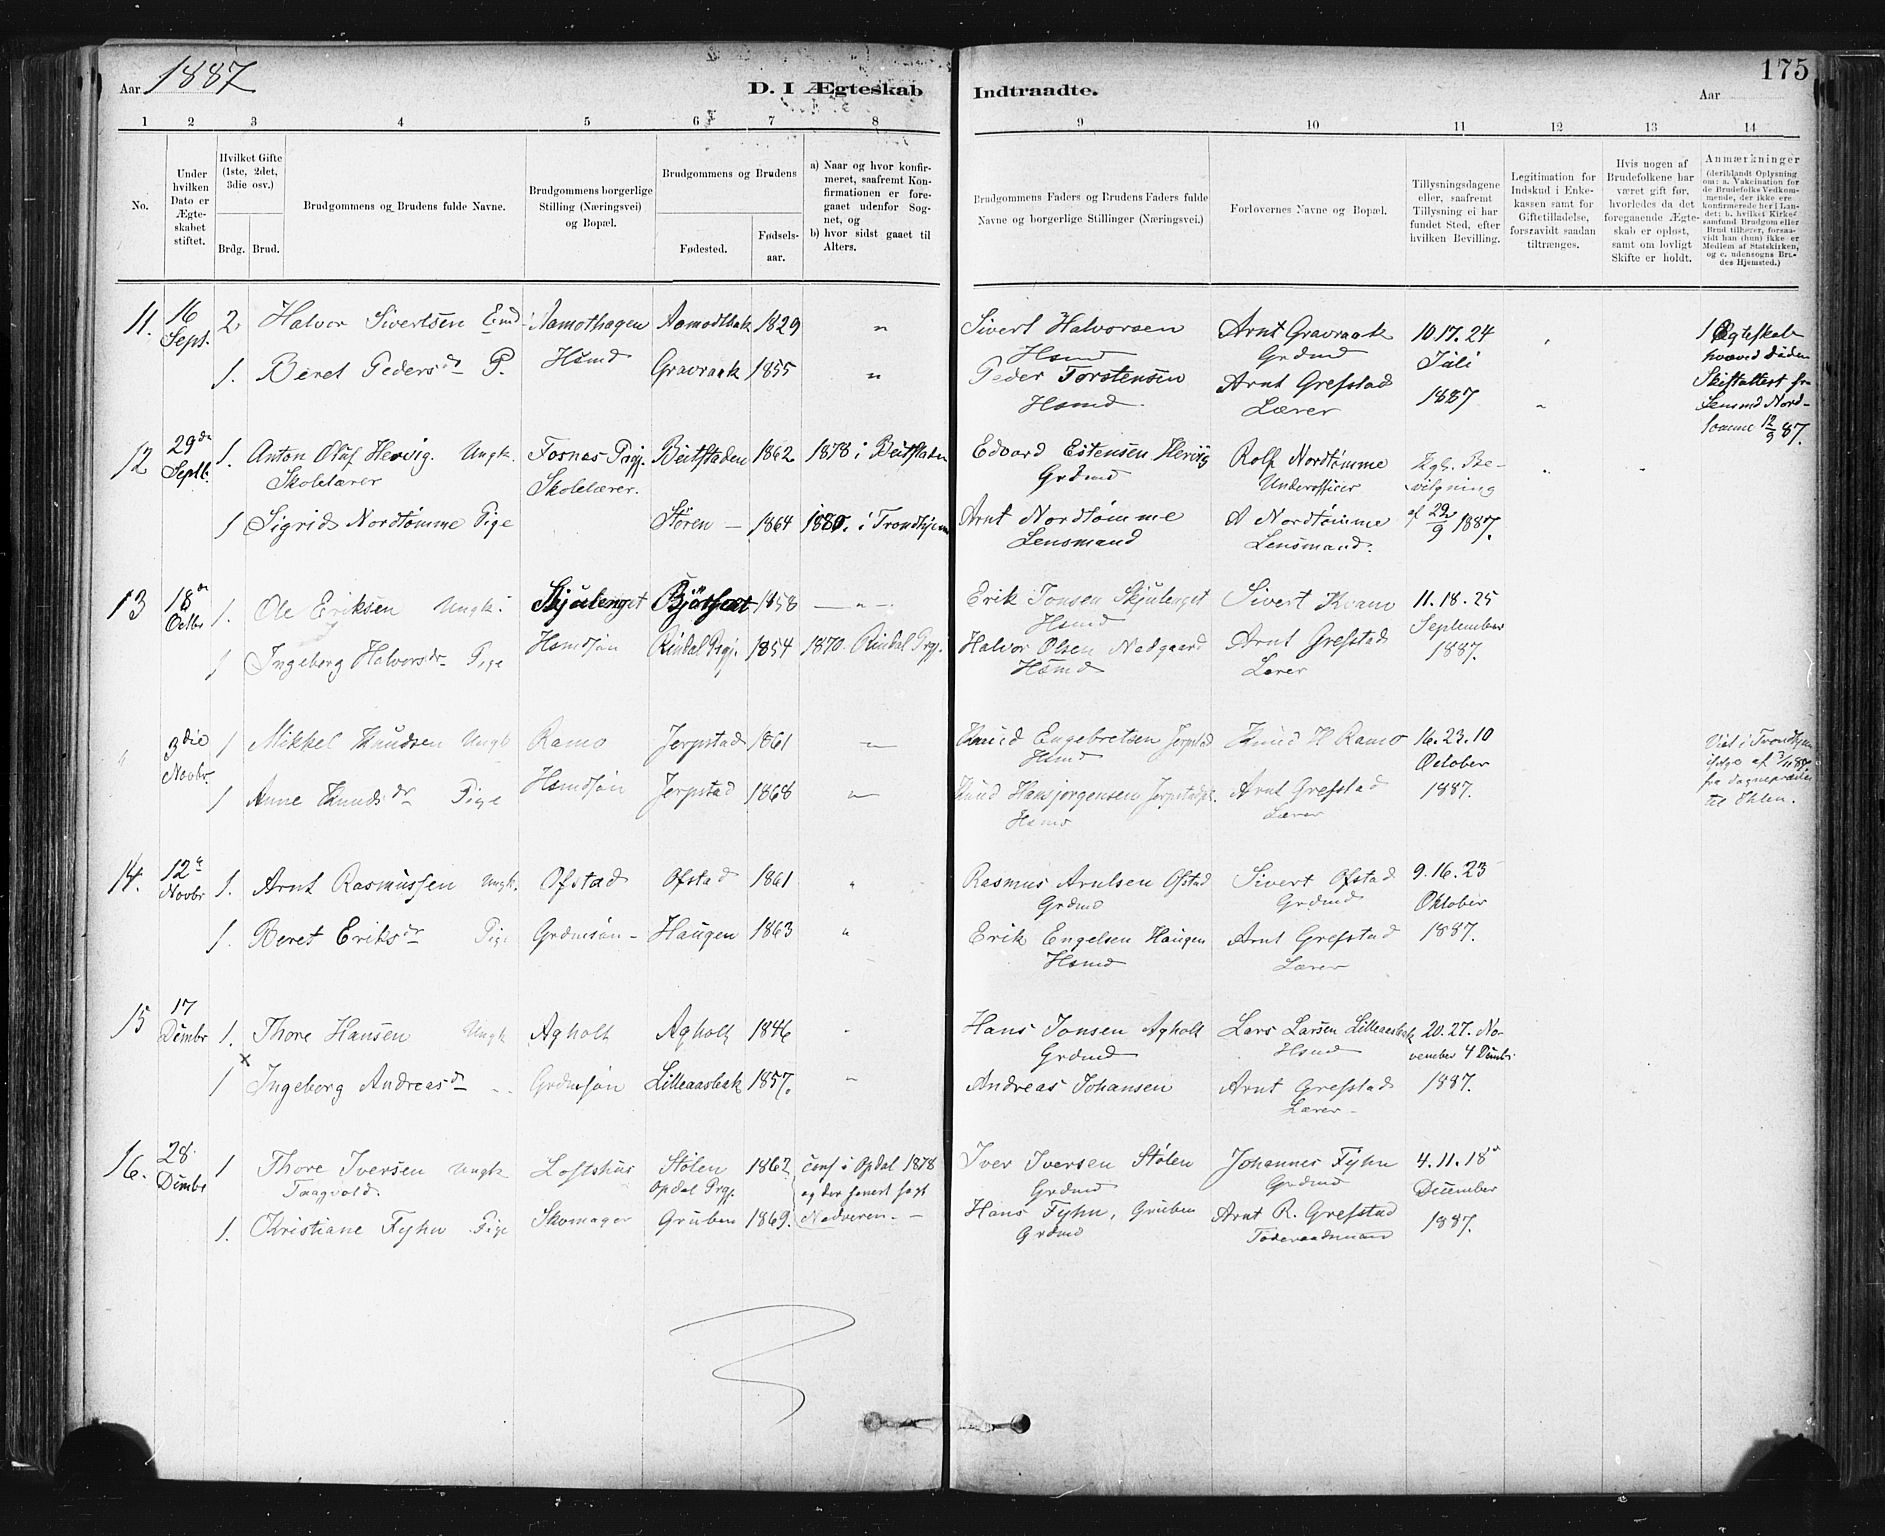 Aar 1887
D. I Ægteskab Indtraadte.
175
Aar
1 2 3 4 5 6 7 8 9 10 11 12 13 14
No.
Under hvilken Dato er Ægteskabet stiftet.
Hvilket Gifte (1ste, 2det, 3die osv.)
Brdg. Brud.
Brudgommens og Brudens fulde Navne.
Brudgommens borgerlige Stilling (Næringsvei) og Bopæl.
Brudgommens og Brudens
Fødested. Fødselsaar.
a) Naar og hvor konfirmeret, saafremt Konfirmationen er foregaaet udenfor Sognet, og
b) hvor sidst gaaet til Alters.
Brudgommens Faders og Brudens Faders fulde Navne og borgerlige Stillinger (Næringsvei.)
Forlovernes Navne og Bopæl.
Tillysningsdagene eller, saafremt Tillysning ei har fundet Sted, efter hvilken Bevilling.
Legitimation for Indskud i Enkekassen samt for Giftetilladelse, forsaavidt saadan tiltrænges.
Hvis nogen af Brudefolkene har været gift før, hvorledes da det foregaaende Ægteskab er opløst, samt om lovligt Skifte er holdt.
Anmærkninger (deriblandt Oplysning om: a. Vakcination for de Brudefolks Vedkommende, der ikke ere konfirmerede her i Landet; b. hvilket Kirkesamfund Brudgom eller Brud tilhører, forsaavidt han (hun) ikke er Medlem af Statskirken, og c. udensogns Brudes Hjemsted.)
11. 16 Sept. 2. Halvor Sivertsen Emd. Aamothagen Aamodtbak 1829 " Sivert Halvorsen Arnt Gravraak 10.17.24 1 Ægteskab
Hsmd Hsmd Grdmd Juli hævet v. Døden
1. Beret Pedersdr P. Gravraak 1855 " Peder Torstensen Arnt Grefstad 1887 Skifteattest fra
Hsmd Lærer Lensmd Nordtømme 12/9 87.
12 29de Septb. 1. Anton Oluf Hervig. Ungk. Fosnes Prgj. Beitstaden 1862 1878 i Beitstaden Edvard Estensen Hervig Rolf Nordtømme Kgl. Be-
Skolelærer Skolelærer. Grdmd Underofficer vilgning
1 Sigrid Nordtømme Pige Støren 1864 1880. i Trondhjem Arnt Nordtømme A Nordtømme af 29/9 1887.
Lensmand Lensmand.
13 18de Octbr 1. Ole Eriksen Ungk. Skjulenget 1858 Erik Jonsen Skjulenget Sivert Kvam 11.18.25
Hsmd September
1 Ingeborg Halvorsdr Pige Hsmdsøn Rindal Prgj. 1854 1870. Rindal Prgj. Halvor Olsen Nedgaard Arnt Grefstad 1887.
Hsmd Lærer
" 3die Novbr. 1 Mikkel Knudsen Ungk Ramo Jerpstad 1861 " Knud Engebretsen Jerpstad Knud H Ramo 16.23.10 Viet i Trondhjem
Hsmd October ifølge af
1 Anne Knudsdr Pige Hsmdsøn Jerpstad 1868 " Knud Hansjørgensen Jerpstad Arnt Grefstad 1887. fra Sognepræsten
Hsmd Lærer til Ihlen.
14. 12te Novbr 1. Arnt Rasmussen Ungk. Ofstad Ofstad 1861 " Rasmus Arntsen Ofstad Sivert Ofstad 9.16.23
Grdmd Grdmd Oktober
1. Beret Eriksdr Pige Grdmsøn Haugen 1863 " Erik Engelsen Haugen Arnt Grefstad 1887.
Hsmd Lærer
15 17 Dcmbr 1. Thore Hansen Ungk Agholt Agholt 1846 " Hans Jonsen Agholt Lars Larsen Lilleaasbak 20.27. No-
x Grdmd Hsmd vember 4 Dcmbr
1 Ingeborg Andreasdr Grdmsøn Lilleaasbak 1857. " Andreas Johansen Arnt Grefstad 1887.
Lærer
16. 28 Dcmbr 1 Thore Iversen Ungk Loftshus Stølen 1862 conf i Opdal 1878 Iver Iversen Stølen Johannes Fyhn 4.11.18de
Taagvold Opdal Prgj. og der senest Grdmd Grdmd December
1. Christiane Fyhn Pige Skomager Gruben 1869. Nadveren. Hans Fyhn, Gruben Arnt R. Grefstad 1887.
Grdmd Føderaadsmand